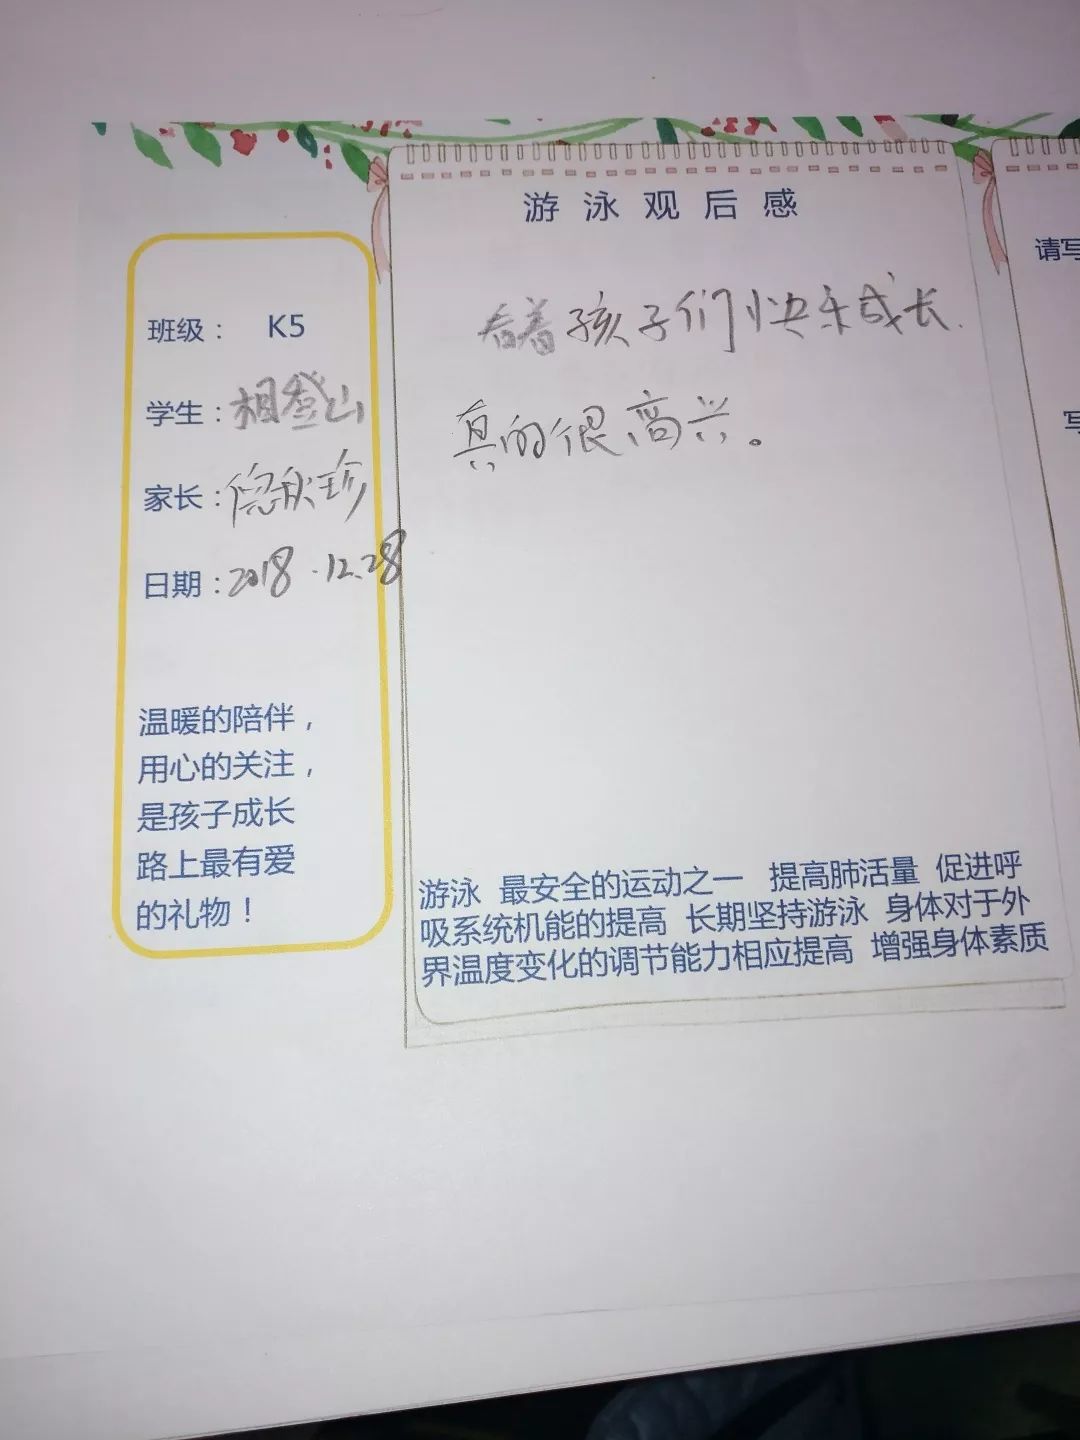 游泳观后感
班级： K5
学生：相登山
家长：秋珍
日期：2018.12.28
温暖的陪伴，
用心的关注，
是孩子成长
路上最有爱
的礼物！
看着孩子们快乐成长.
真的很高兴。
游泳 最安全的运动之一 提高肺活量 促进呼
吸系统机能的提高 长期坚持游泳 身体对于外
界温度变化的调节能力相应提高 增强身体素质
请写
写